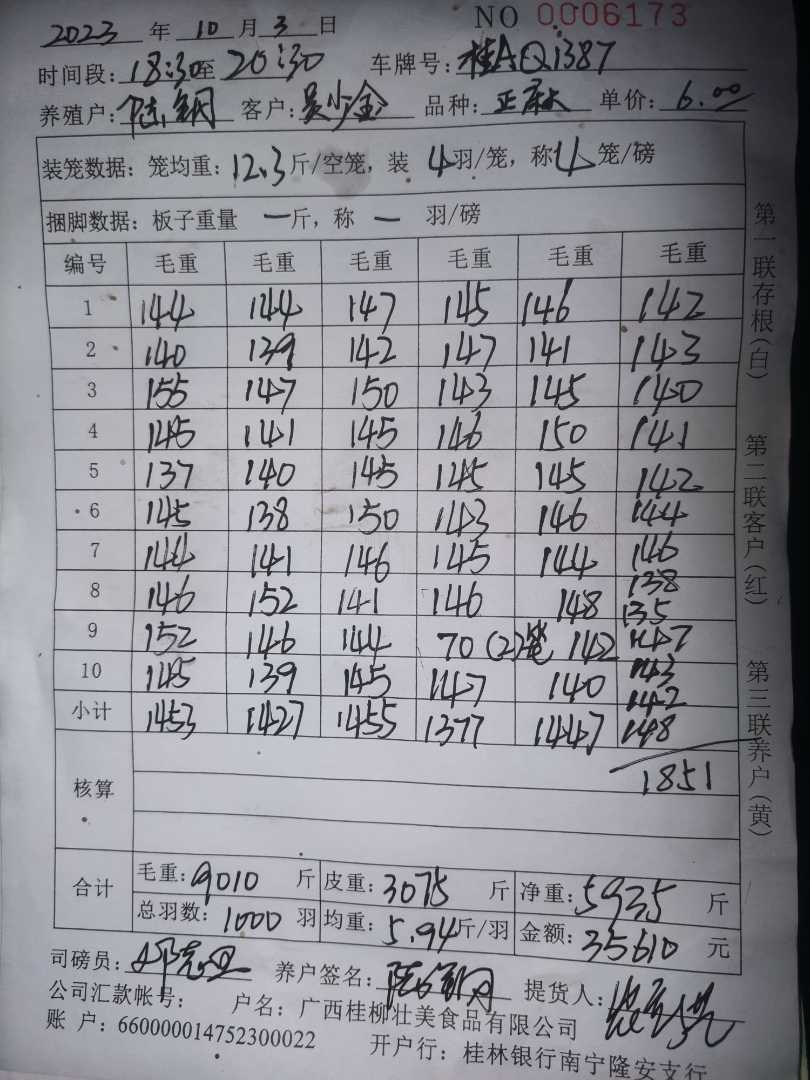 NO 0006173
2023 年 10 月 3 日
时间段: 18:30 至 20:30 车牌号: 桂AQ1387
养殖户: 陆钢 客户: 吴少金 品种: 正麻 单价: 6.00
装笼数据: 笼均重: 12.3 斤/空笼, 装 4 羽/笼, 称 4 笼/磅
捆脚数据: 板子重量 一 斤, 称 一 羽/磅
编号 毛重 毛重 毛重 毛重 毛重 毛重
1 144 144 147 145 146 142
2 140 139 142 147 141 143
3 155 147 150 143 145 140
4 145 141 145 146 150 141
5 137 140 145 145 145 142
6 145 138 150 143 146 144
7 144 141 146 145 144 146
138
8 146 152 141 146 148 135
9 152 146 144 70 (2)笼 142 147
143
10 145 139 145 147 140 142
小计 1453 1427 1455 1377 1447 148
1851
核算
合计 毛重: 9010 斤 皮重: 3075 斤 净重: 5935 斤
总羽数: 1000 羽 均重: 5.94 斤/羽 金额: 35610 元
司磅员: 养户签名: 提货人:
公司汇款帐号: 户名: 广西桂柳壮美食品有限公司
账 户: 660000014752300022 开户行: 桂林银行南宁隆安支行
第一联存根(白) 第二联客户(红) 第三联养户(黄)